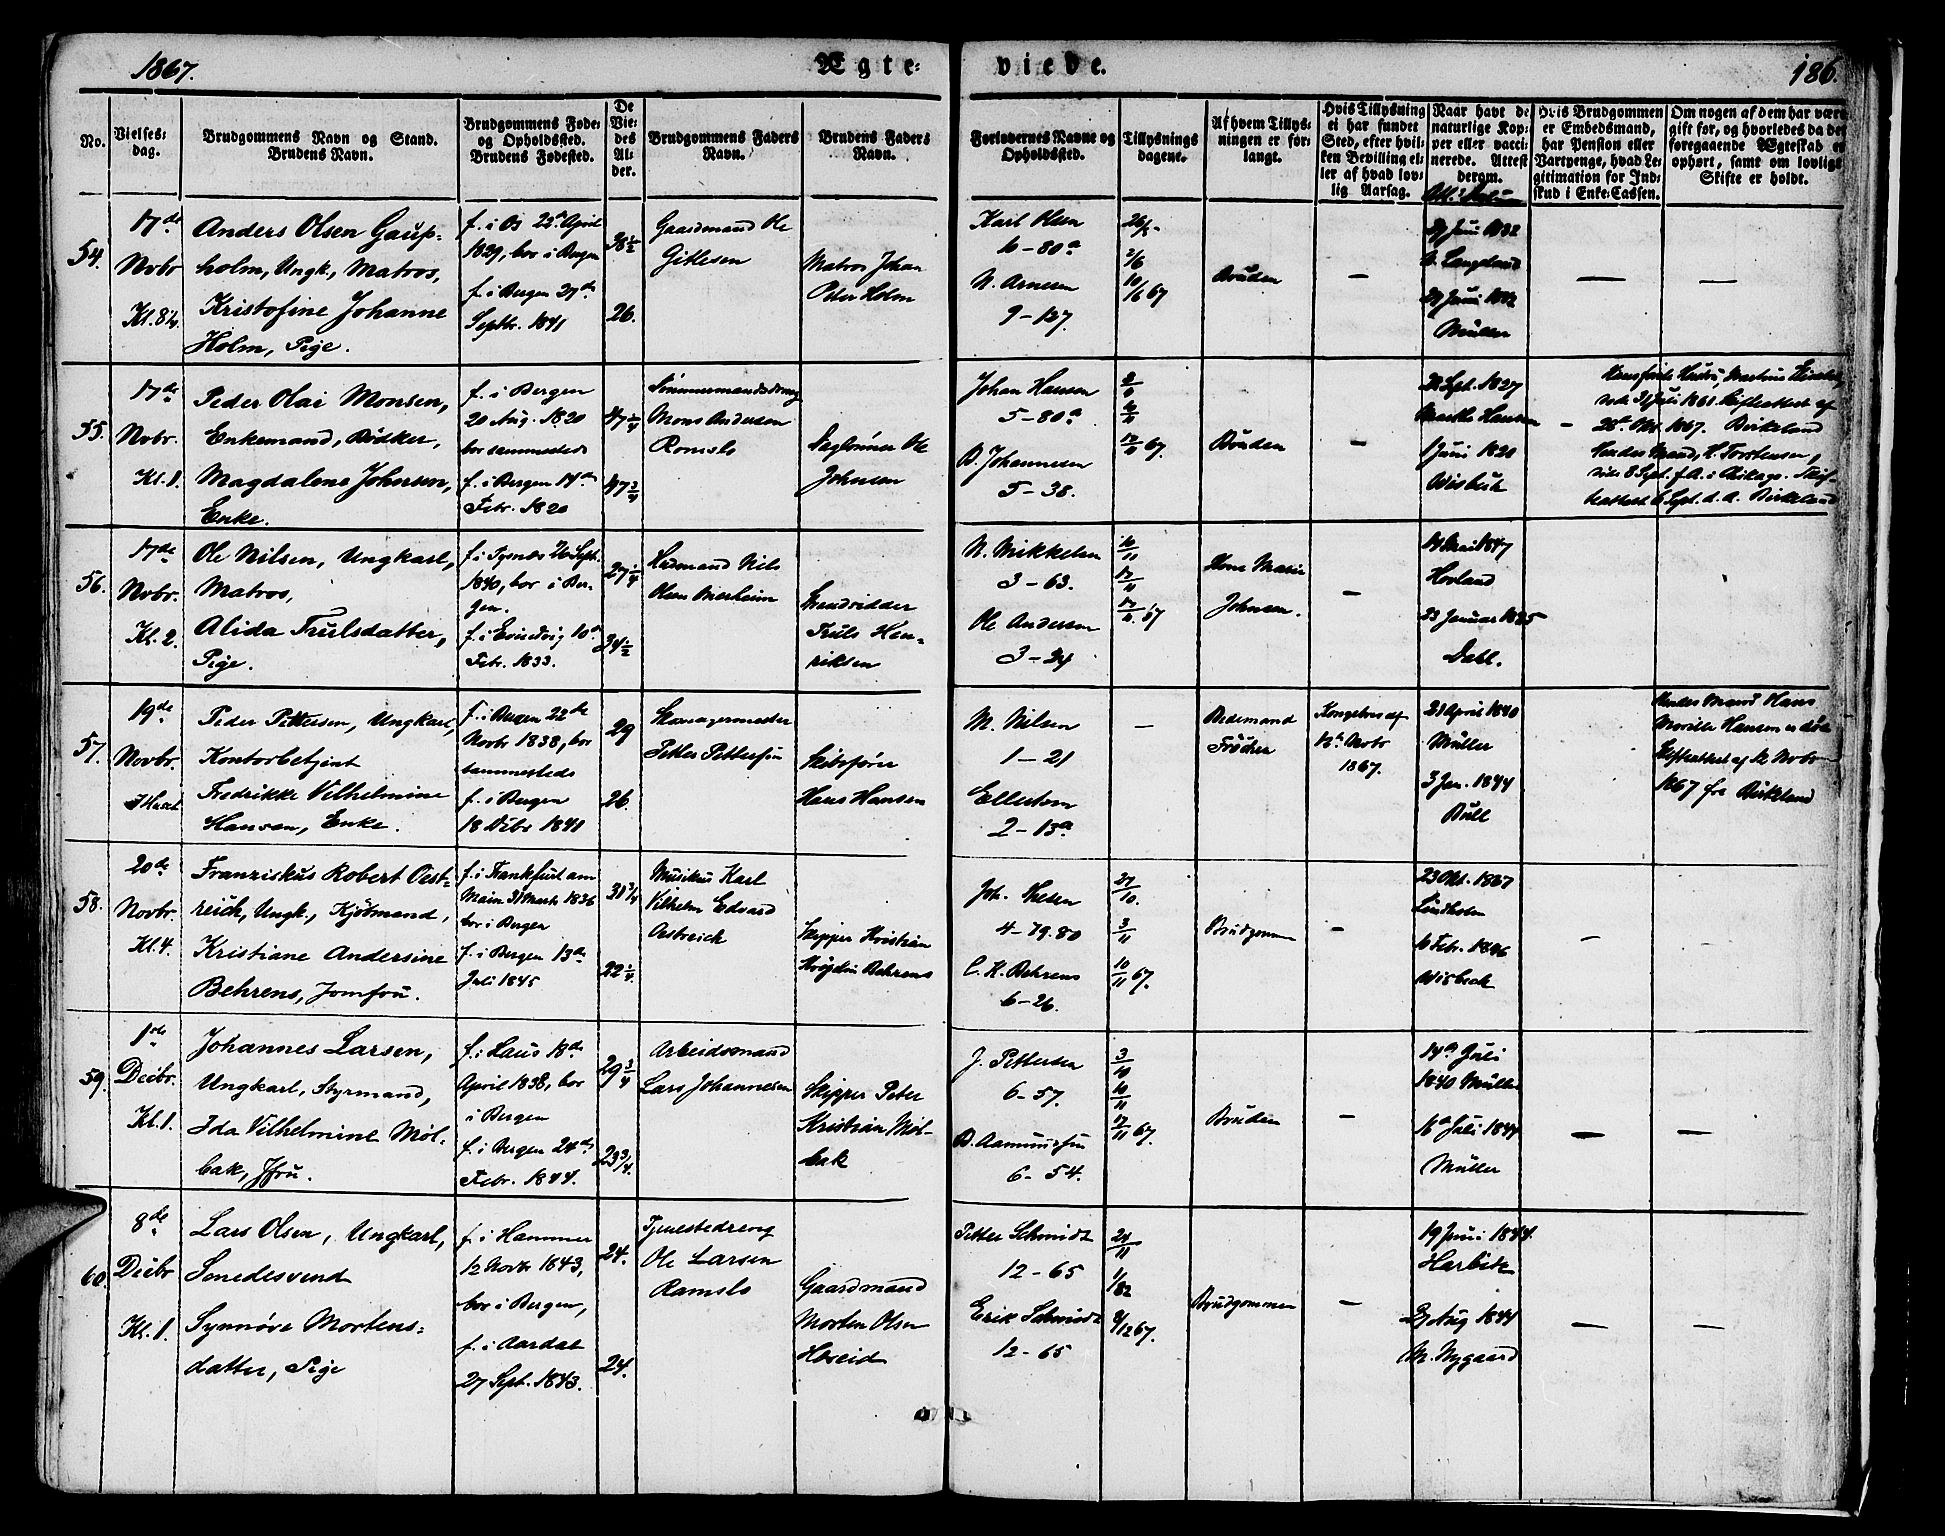 1867.
Ægte=
viede.
186.
No.
Vielses=
dag.
Brudgommens Navn og Stand.
Brudens Navn.
Brudgommens Føde=
og Opholdssted.
Brudens Fødested.
De
Vie=
des
Al=
der.
Brudgommens Faders
Navn.
Brudens Faders
Navn.
Forlovernes Navne og
Opholdssted.
Tillysnings
dagene.
Af hvem Tillys=
ningen er for=
langt.
Hvis Tillysning
ei har fundet
Sted, efter hvil=
ken Bevilling el=
ler af hvad lov=
lig Aarsag.
Naar havt de
naturlige Kop=
per eller vacci=
nerede. Attest
derom.
Hvis Brudgommen
er Embedsmand,
har Pension eller
Vartpenge, hvad Le=
gitimation for Ind=
skud i Enke=Cassen.
Om nogen af dem har være
gift før, og hvorledes da det
foregaaende Ægteskab er
ophørt, samt om lovligt
Skifte er holdt.
54.
17de
Novbr
Kl. 8½
Anders Olsen Gaup=
holm, Ungk., Matros,
Kristofine Johanne
Holm, Pige.
f. i Os 22de April
1829, bor i Bergen
f. i Bergen 27de
Septbr. 1841
38½
26.
Gaardmand Ole
Gitlesen
Matros Johan
Peter Holm
Karl Olsen
6-80a
N. Arnesen
9-127.
26/5
2/6
10/6 67
Bruden
—
29 Juni 1832
Langeland
29 Juni 1842
Müller
—
—
55.
17de
Novbr.
Kl. 1.
Peder Olai Monsen,
Enkemand, Bødker,
Magdalene Johnsen,
Enke.
f. i Bergen
20 Aug. 1820
bor sammesteds
f. i Bergen 14de
Febr. 1820
47¼
47¾
Tømmermandsdreng
Mons Andersen
Romslo
Dagløner Ole
Johnsen
Johan Hansen
5-80a
B. Johannesen
5-38.
17/11 67.
Bruden
—
Sept. 1827
Marthe Hansen
1 Juni 1820
Wisbech
—
Hansførste Hustru, Martine
døde 31 Juli 1861. Skifteattest af
28de Okt. 1867. Birkeland
Hendes Mand, L. Torstensen,
døde 8 Sept. f. A. i Chikago. Skif=
teattest 6 Sept. d. A. Birkeland
56.
17de
Novbr.
Kl. 2.
Ole Nilsen, Ungkarl,
Matros,
Alida Trulsdatter,
Pige.
f. i Tysnæs 26 Sept.
1840, bor i Ber=
gen.
f. i Evindvig 10de
Febr. 1833.
27¼
34½
Husmand Nils
Olsen
Strandsidder
Truls Hen=
riksen
N. Mikkelsen
3-63.
Ole Andersen
3-24
10/11
17/11 67
Marie
Johnsen.
—
19 Mai 1847
Hovland
23 Januar 1835
Dahl.
57.
19de
Novbr.
Peder Pettersen, Ungkarl,
Kontorbetjent
Fredrikke Vilhelmine
Hansen, Enke.
f. i Bergen 22de
Novbr 1838, bor
sammesteds
f. i Bergen
18 Decbr 1841
29
26.
Skomagermester
Petter Pettersen
Skibsfører
Hans Hansen
M. Nilsen
1-21
Ellertsen
2-13a
—
Bedemand
Frøchen
Kongebrev af
12te Novbr
1867.
21 April 1840
Müller
3 Jan. 1844
Bull
Hendes Mand Hans
Hansen er død.
Skifteattest af Novbr
1867 fra Birkeland
58.
20de
Novbr.
Kl. 4.
Franziskus Robert Oest=
reich, Ungk., Kjøbmand,
Kristiane Andersine
Behrens, Jomfru.
f. i Frankfurt am
Main 31 Marts 1836
bor i Bergen
f. i Bergen 13de
Juli 1845
31¾
22¼
Musikus Karl
Vilhelm Edvard
Oestreich
Skipper Kristian
Behrens
Joh. Thesen
4-79.80
C. K. Behrens
6-26.
27/10.
3/11
10/11 67.
Brudgommen
23 Okt. 1867
Lindholm
16 Febr. 1846
Wisbech
—
—
59.
1ste
Decbr.
Kl. 1.
Johannes Larsen,
Ungkarl, Styrmand,
Ida Vilhelmine Møl=
bak, Jfru.
f. i Haus 18de
April 1838, bor
i Bergen
f. i Bergen 24de
Febr. 1844.
29¾
23¾.
Arbeidsmand
Lars Johannesen
Skipper Peter
Kristian Møl=
bak
J. Pettersen
6-57.
B. Aamundsen
6-54.
3/10
10/11
17/11 67.
Bruden
—
14de Juli
1840 Müller
16de Juli 1844
Müller
—
—
60.
8de
Decbr
Kl. 1.
Lars Olsen, Ungkarl,
Smedesvend
Synnøve Mortens=
datter, Pige
f. i Hammer
12 Novbr 1843,
bor i Bergen,
f. i Aardal
27 Sept. 1843.
24.
24.
Tjenestedreng
Ole Larsen
Ramslo
Gaardmand
Morten Olsen
Hæreid
Petter Schmidt
12-65
Erik Schmidt
12-65
24/11
1/12
8/12 67.
Brudgommen
—
19 Juni 1844.
Harbitz
27 Aug 1844
M. Nygaard
—
—